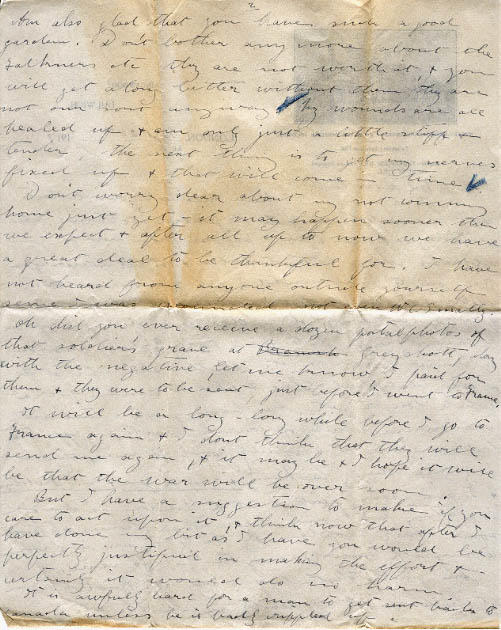 2
Am also glad that you have such a good
garden. Don't bother any more about the
Falkners etc they are not worth it, & you
will get along better without them they are
not our sort anyway. My wounds are all
healed up & am only just a little stiff &
tender the next thing is to get my nerves
fixed up & that will come in time
Don't worry dear about my not coming
home just yet - it may happen sooner than
we expect & after all up to now we have
a great deal to be thankful for. I have
not heard from anyone outside yourself
since I was wounded
Oh did you ever receive a dozen postal photos of
that soldier's grave at Greyshott, along
with the negative let me know I paid for
them & they were to be sent, just before I went to France,
It will be a long - long while before I go to
France again & I dont think that they will
send me again, & it may be & I hope it will
be that the war will be over soon.
But I have a suggestion to make if you
care to act upon it, I think now that after I
have done my bit as I have you would be
perfectly justified in making the effort &
certainly it would do no harm.
It is awfully hard for a man to get sent back to
Canada unless he is badly crippled